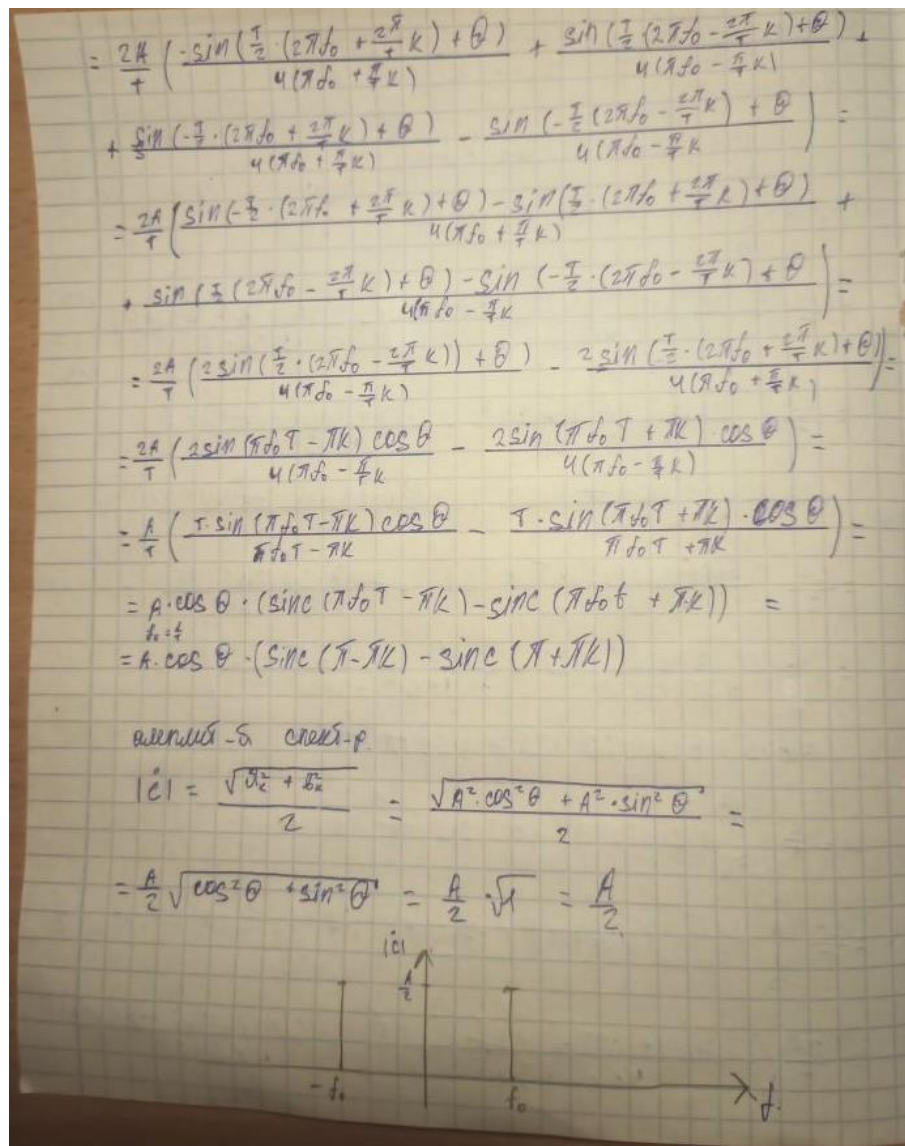 = 2A/T ( -sin(T/2 · (2πf₀ + 2π/T k) + θ) / 4(πf₀ + π/T k) + sin(T/2 · (2πf₀ - 2π/T k) + θ) / 4(πf₀ - π/T k) +
+ sin(-T/2 · (2πf₀ + 2π/T k) + θ) / 4(πf₀ + π/T k) - sin(-T/2 (2πf₀ - 2π/T k) + θ) / 4(πf₀ - π/T k ) =
= 2A/T ( sin(-T/2 · (2πf₀ + 2π/T k) + θ) - sin(T/2 · (2πf₀ + 2π/T k) + θ) / 4(πf₀ + π/T k) +
+ sin(T/2 (2πf₀ - 2π/T k) + θ) - sin(-T/2 · (2πf₀ - 2π/T k) + θ / 4(πf₀ - π/T k ) =
= 2A/T ( 2sin(T/2 · (2πf₀ - 2π/T k)) + θ) / 4(πf₀ - π/T k) - 2sin(T/2 · (2πf₀ + 2π/T k) + θ) / 4(πf₀ + π/T k) ) =
= 2A/T ( 2sin(πf₀T - πk) cos θ / 4(πf₀ - π/T k - 2sin(πf₀T + πk) · cos θ / 4(πf₀ - π/T k) ) =
= A/T ( T · sin(πf₀T - πk) cos θ / πf₀T - πk - T · sin(πf₀T + πk) · cos θ / πf₀T + πk ) =
= A · cos θ · (sinc(πf₀T - πk) - sinc(πf₀t + πk)) =
f₀ = 1/T
= A · cos θ · (sinc(π - πk) - sinc(π + πk))
амплит-й спект-р
|ċ| = √(a²ₖ + b²ₖ) / 2 = √(A² · cos² θ + A² · sin² θ) / 2 =
= A/2 √(cos² θ + sin² θ) = A/2 · √1 = A/2
|ċ|
A/2
-f₀ f₀ f.